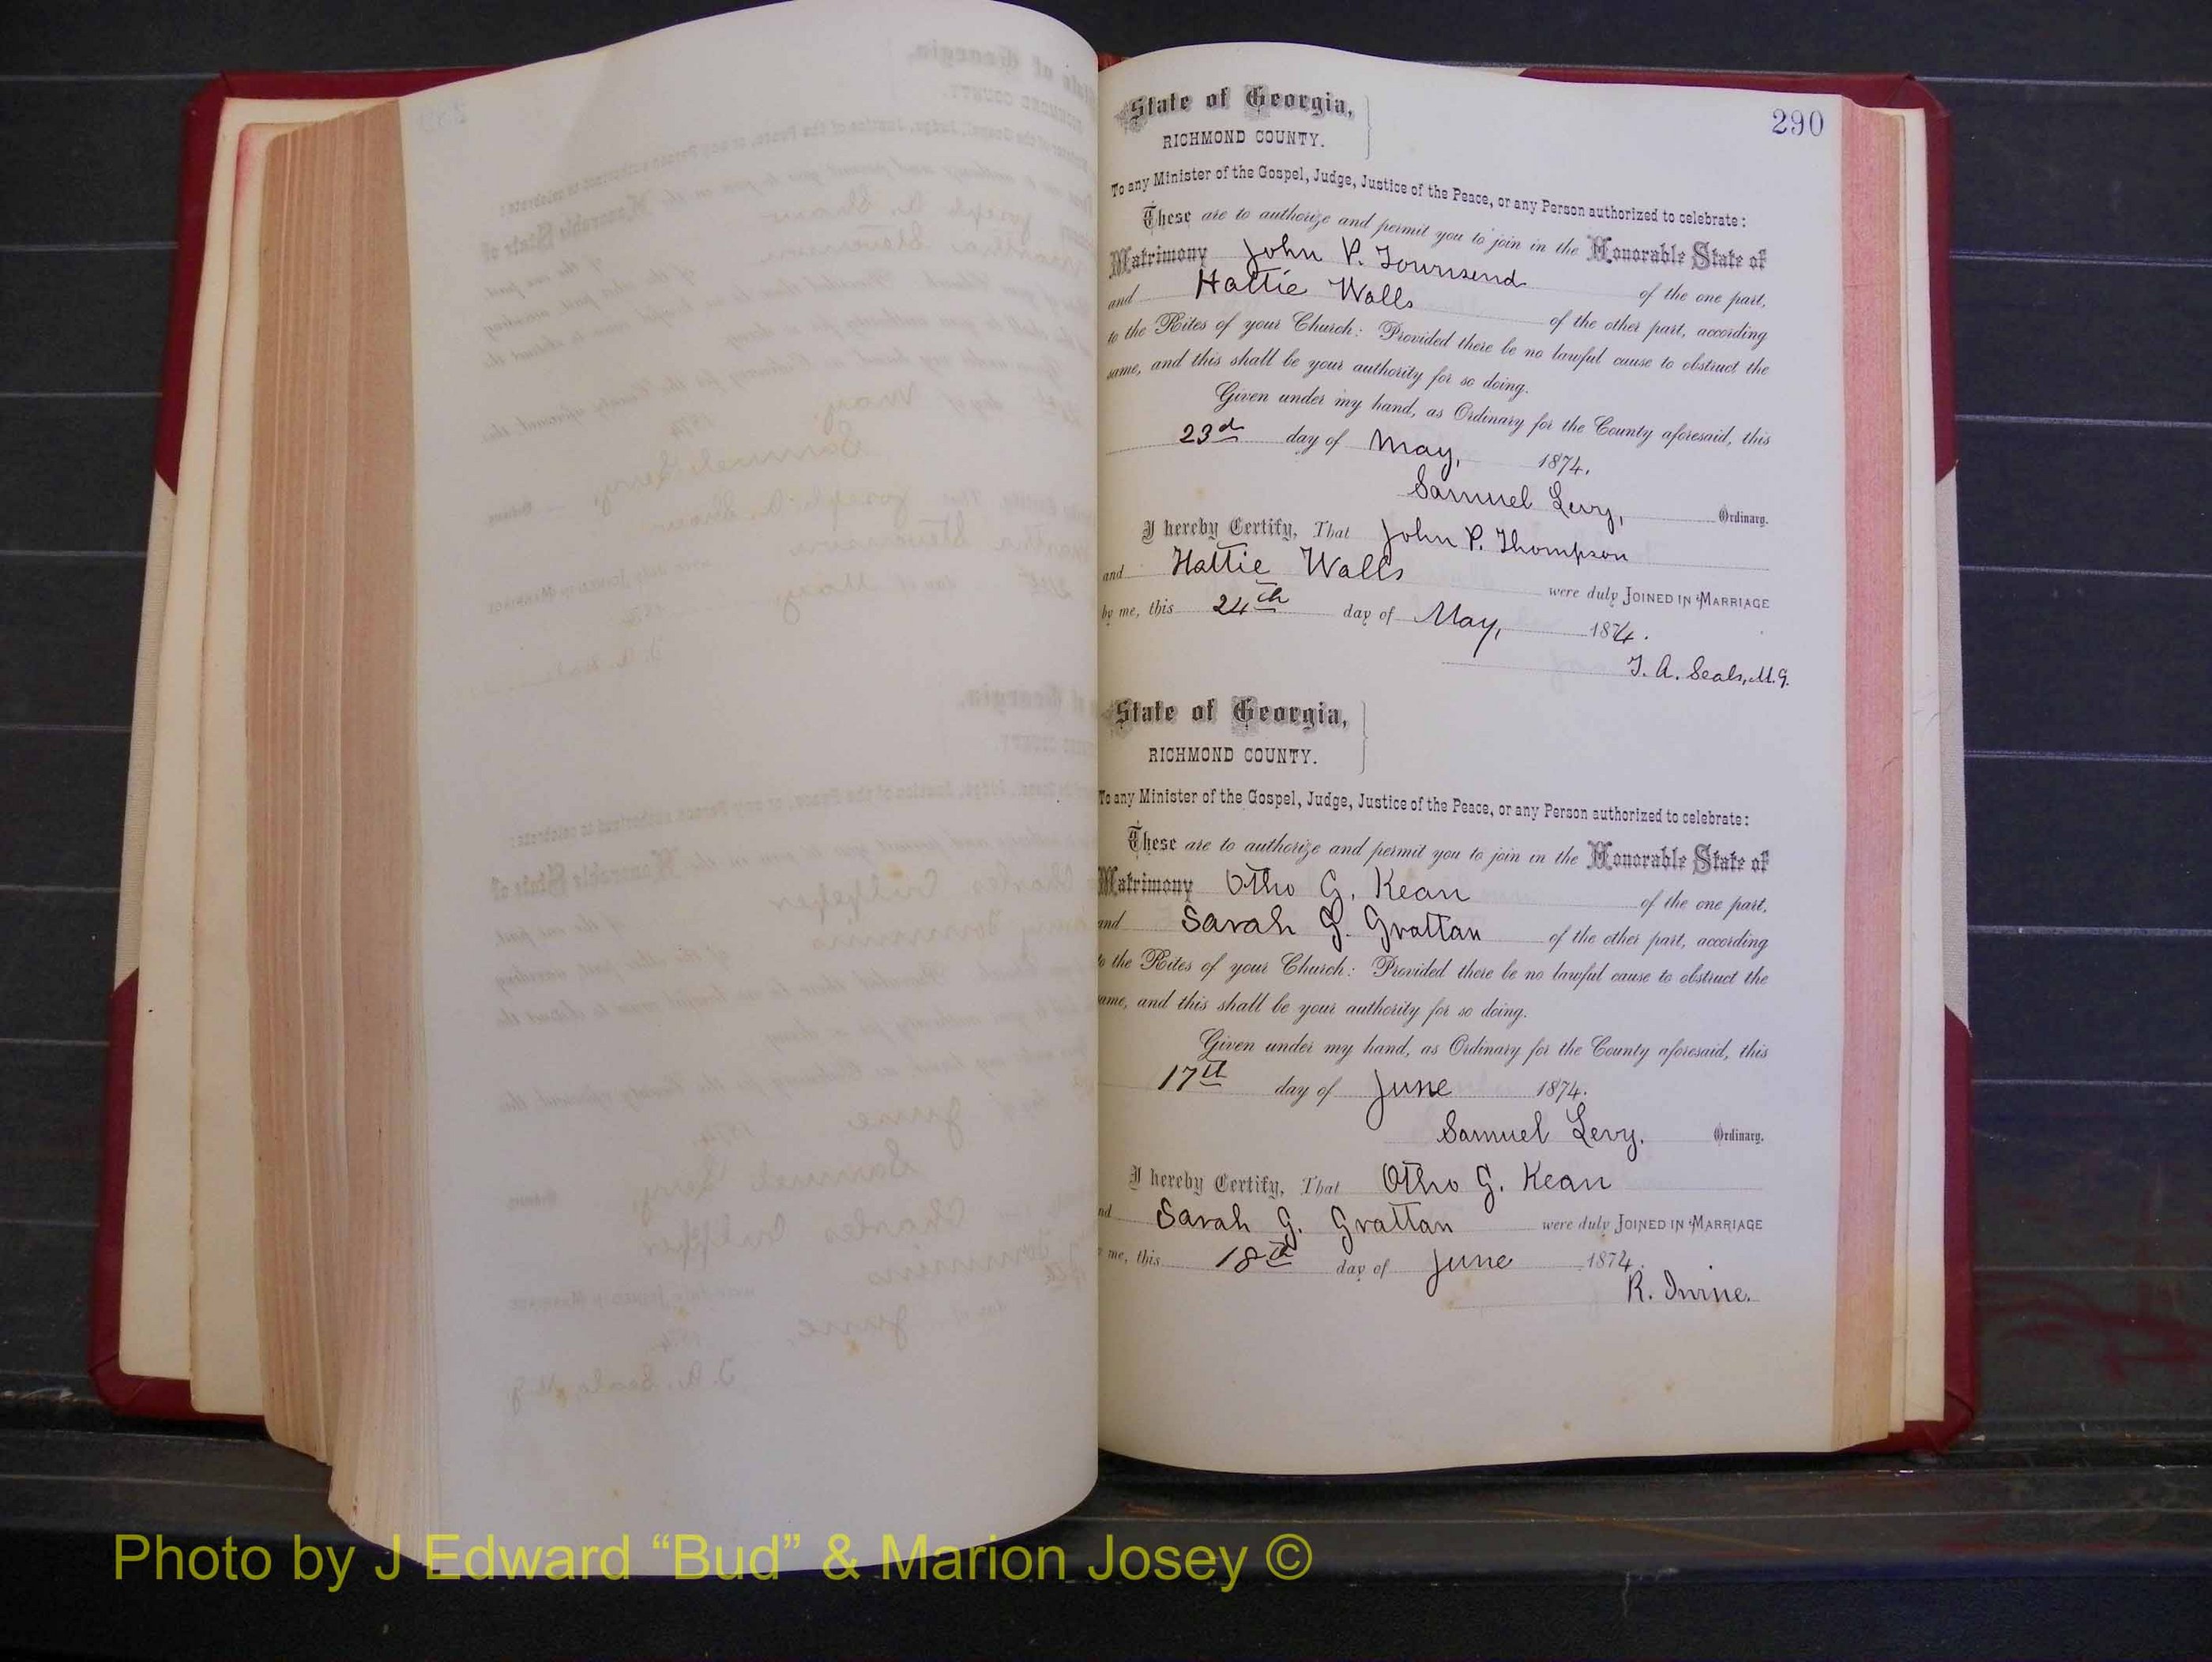 290
State of Georgia,
RICHMOND COUNTY.
To any Minister of the Gospel, Judge, Justice of the Peace, or any Person authorized to celebrate:
These are to authorize and permit you to join in the Honorable State of
Matrimony John P. Townsend of the one part,
and Hattie Walls of the other part, according
to the Rites of your Church: Provided there be no lawful cause to obstruct the
same, and this shall be your authority for so doing.
Given under my hand, as Ordinary for the County aforesaid, this
23d day of May, 1874.
Samuel Levy, Ordinary.
I hereby Certify, That John P. Thompson
and Hattie Walls were duly JOINED IN MARRIAGE
by me, this 24th day of May, 1874.
T. A. Seals, M.G.
State of Georgia,
RICHMOND COUNTY.
To any Minister of the Gospel, Judge, Justice of the Peace, or any Person authorized to celebrate:
These are to authorize and permit you to join in the Honorable State of
Matrimony Otho G. Kean of the one part,
and Sarah G. Grattan of the other part, according
to the Rites of your Church: Provided there be no lawful cause to obstruct the
same, and this shall be your authority for so doing.
Given under my hand, as Ordinary for the County aforesaid, this
17th day of June 1874.
Samuel Levy. Ordinary.
I hereby Certify, That Otho G. Kean
nd Sarah G. Grattan were duly JOINED IN MARRIAGE
me, this 18th day of June 1874.
R. Irvine.
Photo by J Edward “Bud” & Marion Josey ©